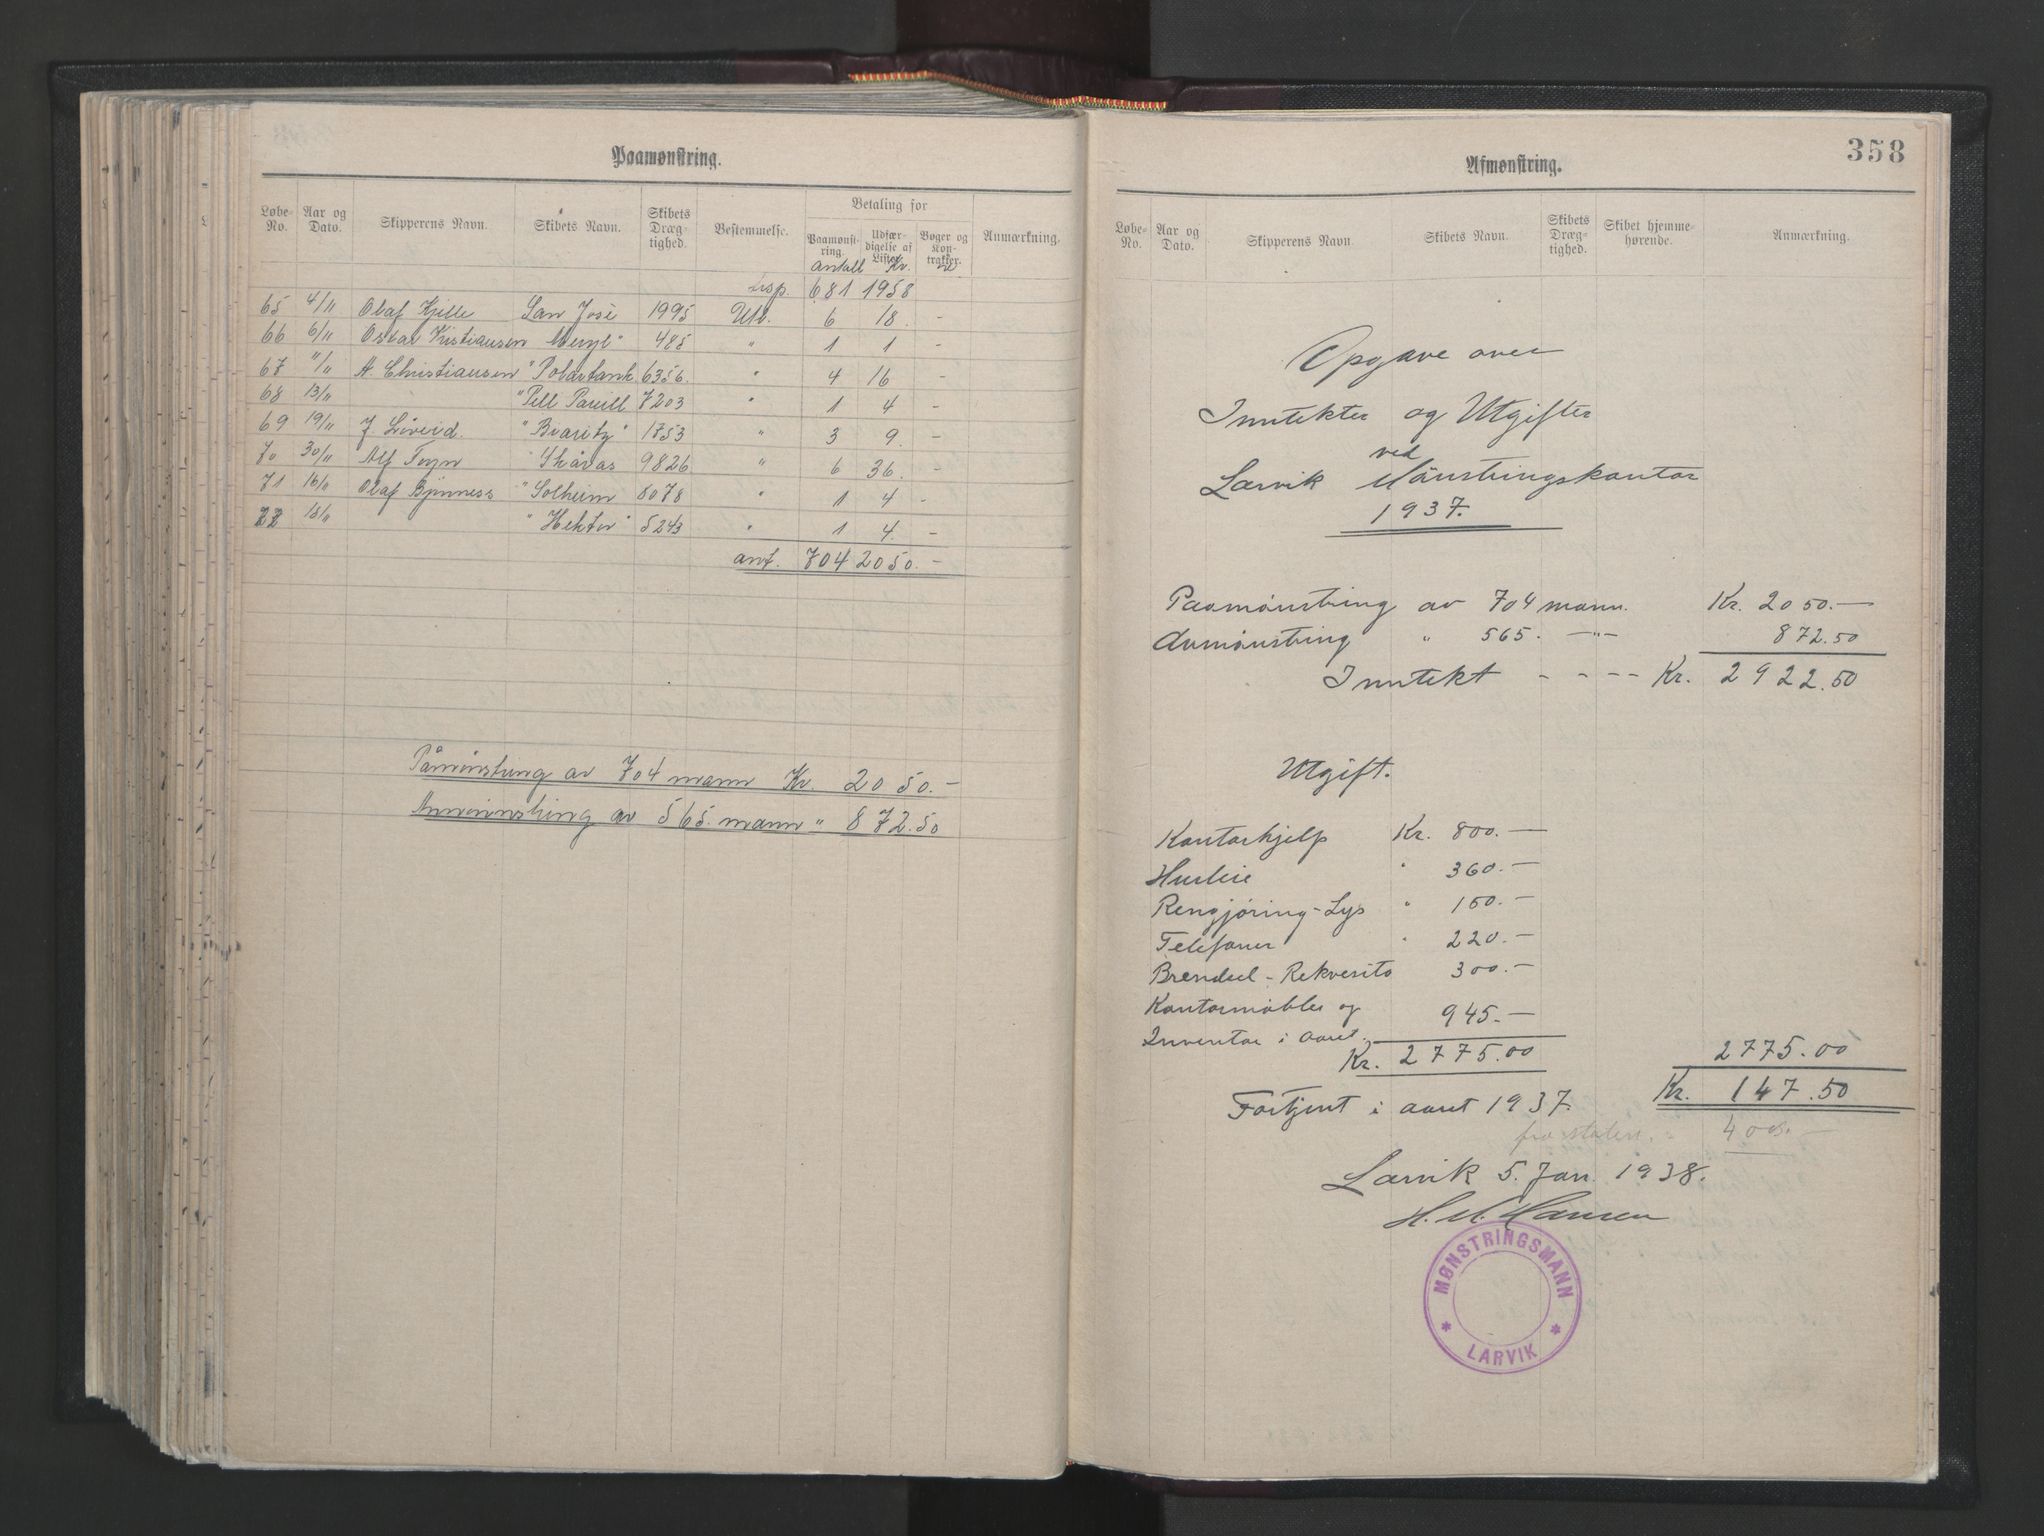 Paamønstring.
Løbe-No. Aar og Dato. Skipperens Navn. Skibets Navn. Skibets Dræg-tighed. Bestemmelse. Betaling for Paamønst-ring. Udfær-digelse af Lister. Bøger og Kon-trakter. Anmærkning.
antall Kr.
681 1958
65 4/11 Olaf Kjelle San José 1995 Utl. 6 18. –
66 6/11 Oskar Kristiansen Meryl" 485 " 1 1 –
67 11/11 A. Christiansen "Polartank 6356. " 4 16 –
68 13/11 "Pell Parill 7203 " 1 4 –
69 19/11 J. Liverd. "Biaritz" 1753 " 3 9. –
70 30/11 Alf Foyn Skåras 9826 " 6 36. –
71 16/11 Olaf Bjønness "Solheim 8078 " 1 4 –
72 18/11 "Hektor" 5243 " 1 4. –
ant. 704 2050. –
Påmønstring av 704 mann Kr. 2050.–
Avmønstring av 565. mann " 872.50
358
Afmønstring.
Løbe-No. Aar og Dato. Skipperens Navn. Skibets Navn. Skibets Dræg-tighed. Skibet hjemme-hørende. Anmærkning.
Opgave over
Inntekter og Utgifter
ved
Larvik Mönstringskontor
1937.
Paamönstring av 704 mann. Kr. 2050.—
Avmönstring " 565. —"— 872.50
Inntekt - - - - Kr. 2922.50
Utgift.
Kontorhjelp Kr. 800.—
Husleie " 360.—
Rengjöring-Lys " 150.—
Telefoner " 220.—
Brendsel - Rekvesita 300.—
Kontormöbler og 945.—
Inventar i aaret.
Kr. 2775.00 2775.00
Fortjent i aaret 1937. Kr. 147.50
fra staten. 400.—
Larvik 5. Jan. 1938.
H. M. Hansen
MØNSTRINGSMANN
* LARVIK *